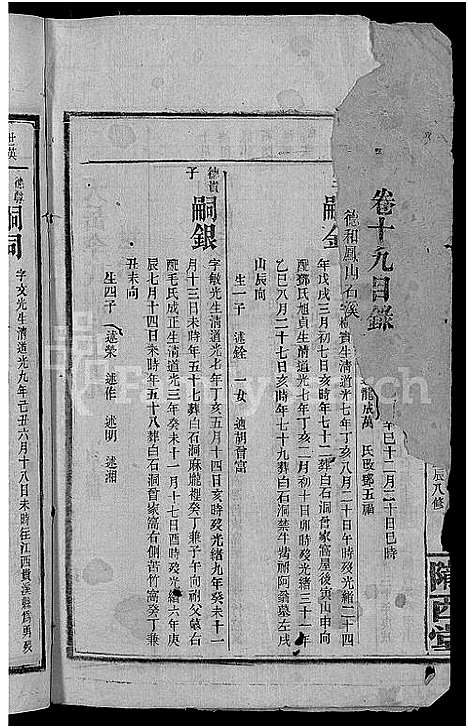 卷十九目錄
德和鳳山石溪
龍成萬 氏改鄧五福
年巳十二月二十日巳時
辰八修
隴西堂
嗣金
生清道光七年丁亥八月二十日午時殁光緒二十四
年戊戌三月初七日亥時年七十二葬白石洞曾家窩屋後寅山申向
配鄧氏旭貞生清道光七年丁亥二月二十一日亥時殁光緒三十一年
乙巳八月二十七日亥時年七十九葬白石洞禁牛嘴祔阿翁墓左戌
山辰向
生一子 述銓 一女 適胡會富
德貴
子
嗣銀
字敏光生清道光七年丁亥五月十四日亥時殁光緒九年癸未十一
月十三日未時年五十七葬白石洞麻巃裡癸丁兼子午向祔父墓右
配毛氏成正生清道光三年癸未十一月十七日酉時殁光緒六年庚
辰七月十四日未時年五十八葬白石洞曾家窩右側苦竹窩癸丁兼
丑未向
生四子 述榮 述作 述明 述湘
嗣
字文光生清道光九年己丑六月十八日未時往江西貴溪縣為勇殁